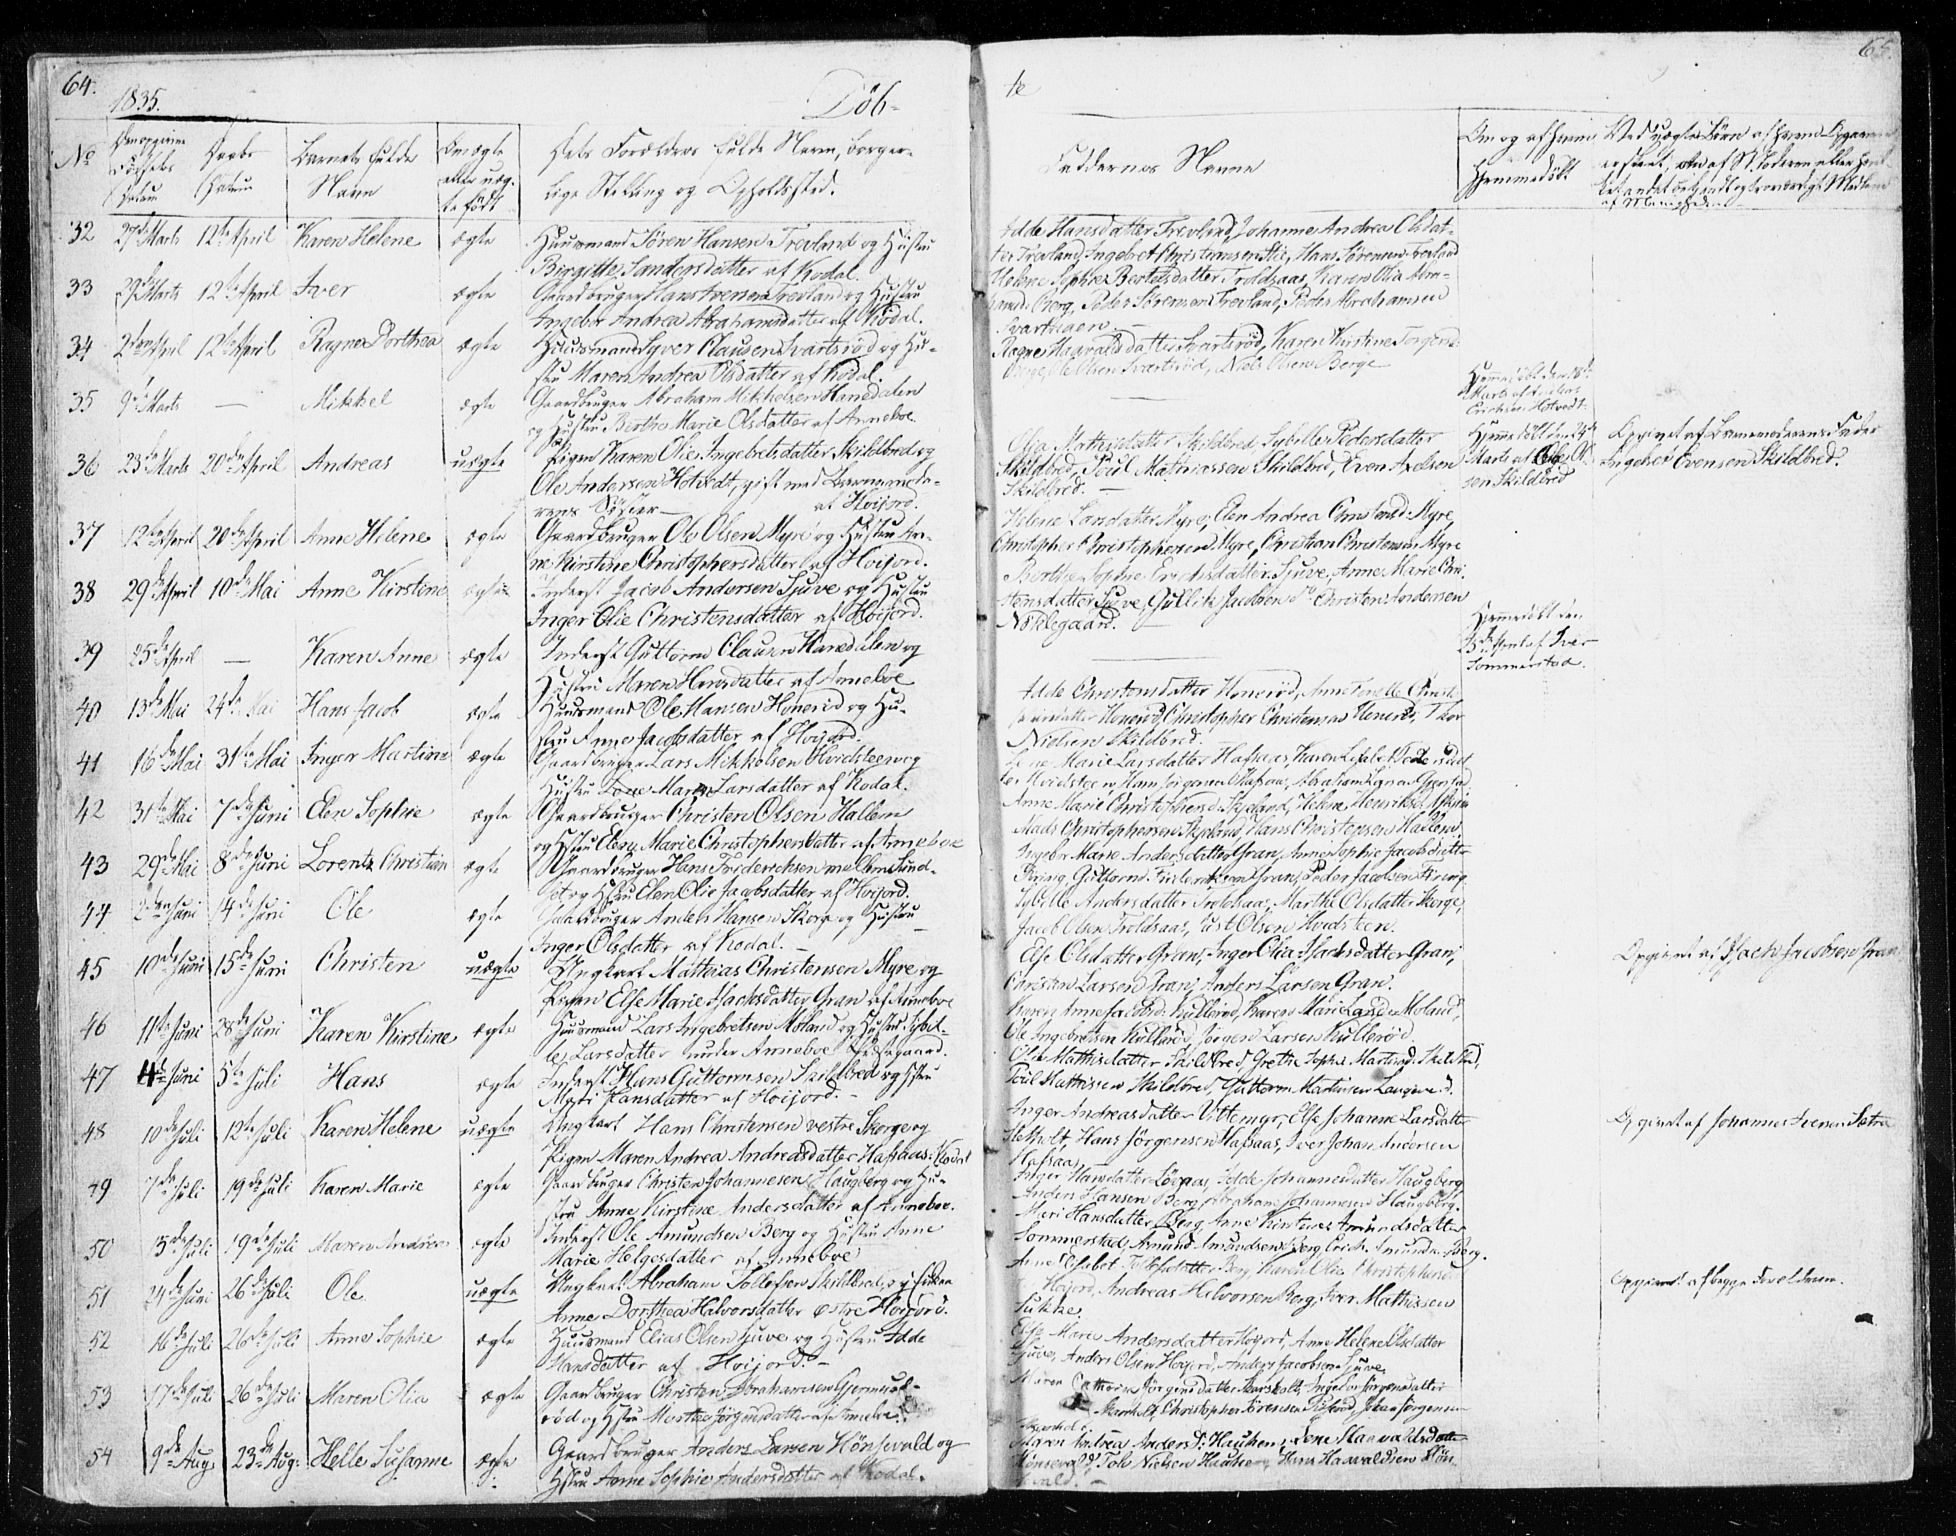 64.
1835.
Døb-
No
Den opgivne
Fødsels
Datum
Daabs
Datum
Barnets fulde
Navn
Om ægte
eller uæg-
te født
Dets Forældres fulde Navn, borger-
lige Stilling og Opholdssted.
32 27de Marts 12te April Karen Helene ægte Huusmand Søren Hansen Trevland og Hustru
Birgitte Sandersdatter af Kodal.
33 29de Marts 12te April Iver ægte Gaardbruger Hans Iversen Trevland og Hustru
Ingebor Andrea Abrahamsdatter af Kodal.
34 2den April 12te April Ragne Dorthea ægte Huusmand Syver Clausen Svartsrød og Hu-
stru Maren Andrea Olsdatter af Kodal.
35 9de Marts — Mikkel ægte Gaardbruger Abraham Mikkelsen Hanedalen
og Hustru Berthe Marie Olsdatter af Arneboe
36 23de Marts 20de April Andreas uægte Pigen Karen Olie Ingebretsdatter Skildbred og
Ole Andersen Hotvedt, gift med Barnemode-
rens Søster — af Høijord.
37 12te April 20de April Anne Helene ægte Gaardbruger Ole Olsen Myre og Hustru An-
ne Kirstine Christophersdatter af Høijord.
38 29de April 10de Mai Anne Kirstine ægte Inderst Jacob Andersen Sjuve og Hustru
Inger Olie Christensdatter af Høijord.
39 25de April — Karen Anne ægte Inderst Guttorm Clausen Hanedalen og
Hustru Maren Hansdatter af Arneboe
40 13de Mai 24de Mai Hans Jacob ægte Huusmand Ole Hansen Honerød og Hu-
stru Anne Jacobsdatter af Høijord.
41 16de Mai 31te Mai Inger Martine ægte Gaardbruger Lars Mikkelsen Hvidsteen og
Hustru Lene Marie Larsdatter af Kodal.
42 31te Mai 7de Juni Elen Sophie ægte Gaardbruger Christen Olsen Hallem
og Hstru Elen Marie Christophersdatter af Arneboe
43 29de Mai 8de Juni Lorentz Christian ægte Gaardbruger Hans Friderichsen mellem Sund-
set og Hstru Elen Olie Jacobsdatter af Høijord.
44 2den Juni 14de Juni Ole ægte Gaardbruger Anders Hansen Skorge og Hustru
Inger Olsdatter af Kodal. —
45 10de Juni 15de Juni Christen uægte Ungkarl Mathias Christensen Myre og
Pigen Else Marie Isachsdatter Gran af Arneboe
46 11te Juni 28de Juni Karen Kirstine ægte Huusmand Lars Ingebretsen Moland og Hustru Sybil-
le Larsdatter under Arneboe Præstegaard.
47 4de Juni 5te Juli Hans ægte Inderst Hans Guttormsen Skildbred og Hstru
Mari Hansdatter af Høijord. —
48 10de Juli 12te Juli Karen Helene uægte Ungkarl Hans Christensen vestre Skorge og
Pigen Maren Andrea Andreasdatter Hafsaas: Kodal
49 7de Juli 19de Juli Karen Marie ægte Gaardbruger Christen Johannesen Haugberg og Hu-
stru Anne Kirstine Andersdatter af Arneboe.
50 13de Juli 19de Juli Maren Andrea ægte Inderst Ole Amundsen Berg og Hustru Anne
Marie Helgesdatter af Arneboe
51 24de Juni 26de Juli Ole uægte Ungkarl Abraham Tollefsen Skildbred og Pigen
Anne Dorthea Halvorsdatter østre Høijord.
52 16de Juli 26de Juli Anne Sophie ægte Huusmand Elias Olsen Sjuve og Hustru Adde
Hansdatter af Høijord. —
53 17de Juli 26de Juli Maren Olia ægte Gaardbruger Christen Abrahamsen Gjermund-
rød og Hstru Marthe Jørgensdatter af Arneboe.
54 9de Aug. 23de Aug: Helle Susanne ægte Gaardbruger Anders Larsen Hønsevald og
Hstru Anne Sophie Andersdatter af Kodal.
te
65.
Faddernes Navne
Om og af hvem
Hjemmedøbt
Ved uægte Børn af hvem Opgaven
er skeet, om af Moderen eller hvil-
ket andet bekjendt og troværdigt Medlem
af Menigheden
Adde Hansdatter Trevland, Johanne Andrea Olsdat-
ter Trevland, Ingebret Christensen Lie, Hans Sørensen Trevland
Helene Sophie Bertelsdatter Troldsaas, Karen Olia Abra-
hamsd. Berg, Peder Sørensen Trevland, Peder Abrahamsen
Svartsuaern. —
Ragne Haavaldsdatter Svartsrød, Karen Kirstine Torgers-
Berge, Ole Olsen Svartsrød, Niels Olsen Berge
Hjemmedøbt den 18de
Marts af
Erichsen Hotvedt.
Olia Mathisdatter Skildbred, Sybille Pedersdatter
Skildbred, Poul Mathiassen Skildbred, Even Axelsen
Skildbred. —
Hjemmedøbt den 24de
Marts af Ole Ol-
sen Skildbred
Opgivet af Barnemoderens Fader
Ingebret Evensen Skildbred.
Helene Larsdatter Myre, Elen Andrea Christensd: Myre
Christopher Christophersen Myre, Christian Christensen Myre
Berthe Sophie Erichsdatter Sjuve, Anne Marie Chri-
stensdatter Sjuve, Gullik Jacobsen do Christen Andersen
Nøklegaard. —
Hjemmedøbt den
25de April af Iver
Sommerstad.
Adde Christensdatter Honerød, Anne
datter Honerød, Christopher Christensen Honerød, Thor
Nielsen Skildbred.
Lene Marie Larsdatter Hafsaas, Karen Lisabet Pedersdat-
ter Hvidsteen, Hans Jørgensen Hafsaas, Abraham
Anne Marie Christophersd. Skjeland, Helene Henriksd.
Mads Christophersen Skjeland, Hans Christensen Hallem
Ingebor Marie Andersdatter Gran, Anne Sophie Jacobsdatter
Bring, Guttorm Friderichsen Gran, Peder Jacobsen Bring
Sybille Andersdatter Troldsaas, Marthe Olsdatter Skorge,
Jacob Olsen Troldsaas, Just Olsen Hvidsteen.
Else Olsdatter Gran, Inger Olia Isachsdatter Gran,
Christen Larsen Gran, Anders Larsen Gran.
Opgivet af Isach Jacobsen Gran
Karen Anne Jacobsd: Kullerød, Karen Marie Larsd. Moland,
Ole Ingebretsen Kullerød, Jørgen Larsen Kullerød.
Olia Mathisdatter Skildbred, Grethe Sophie Martinsd: Skildbred,
Poul Mathisen Skildbred, Guttorm Martinsen
Inger Andreasdatter Vittemyr, Else Johanne Larsdatter
Stetholt, Hans Jørgensen Hafsaas, Iver Johan Andersen
Hafsaas
Opgivet af Johannes Iversen Sætra
Inger Hansdatter Løvaas, Adde Johannesdatter Haugberg,
Anders Hansen Berg, Abraham Johannesen Haugberg.
Mari Hansdatter Berg, Anne Kirstine Amundsdatter
Sommerstad, Amund Amundsen Berg, Erich Amunds. Berg.
Anne Elisabet Tollefsdatter Berg, Karen Olia Christophersd.
Høijord, Andreas Halvorsen Berg, Iver Mathissen
Sukke
Opgivet af begge Forældrene.
Else Marie Andersdatter Høijord, Anne Helene Olsdatter
Sjuve, Anders Olsen Høijord, Anders Jacobsen Sjuve
Maren Cathrine Jørgensdatter Aarsholt, Ingebor Jørgensdatter
Christopher Sørensen Johan Jørgensen
Maren Andrea Andersd: Haukene, Lene Haavaldsdatter
Hønsevald, Tolv Nielsen Haukene, Hans Haavaldsen Høn-
sevald. —